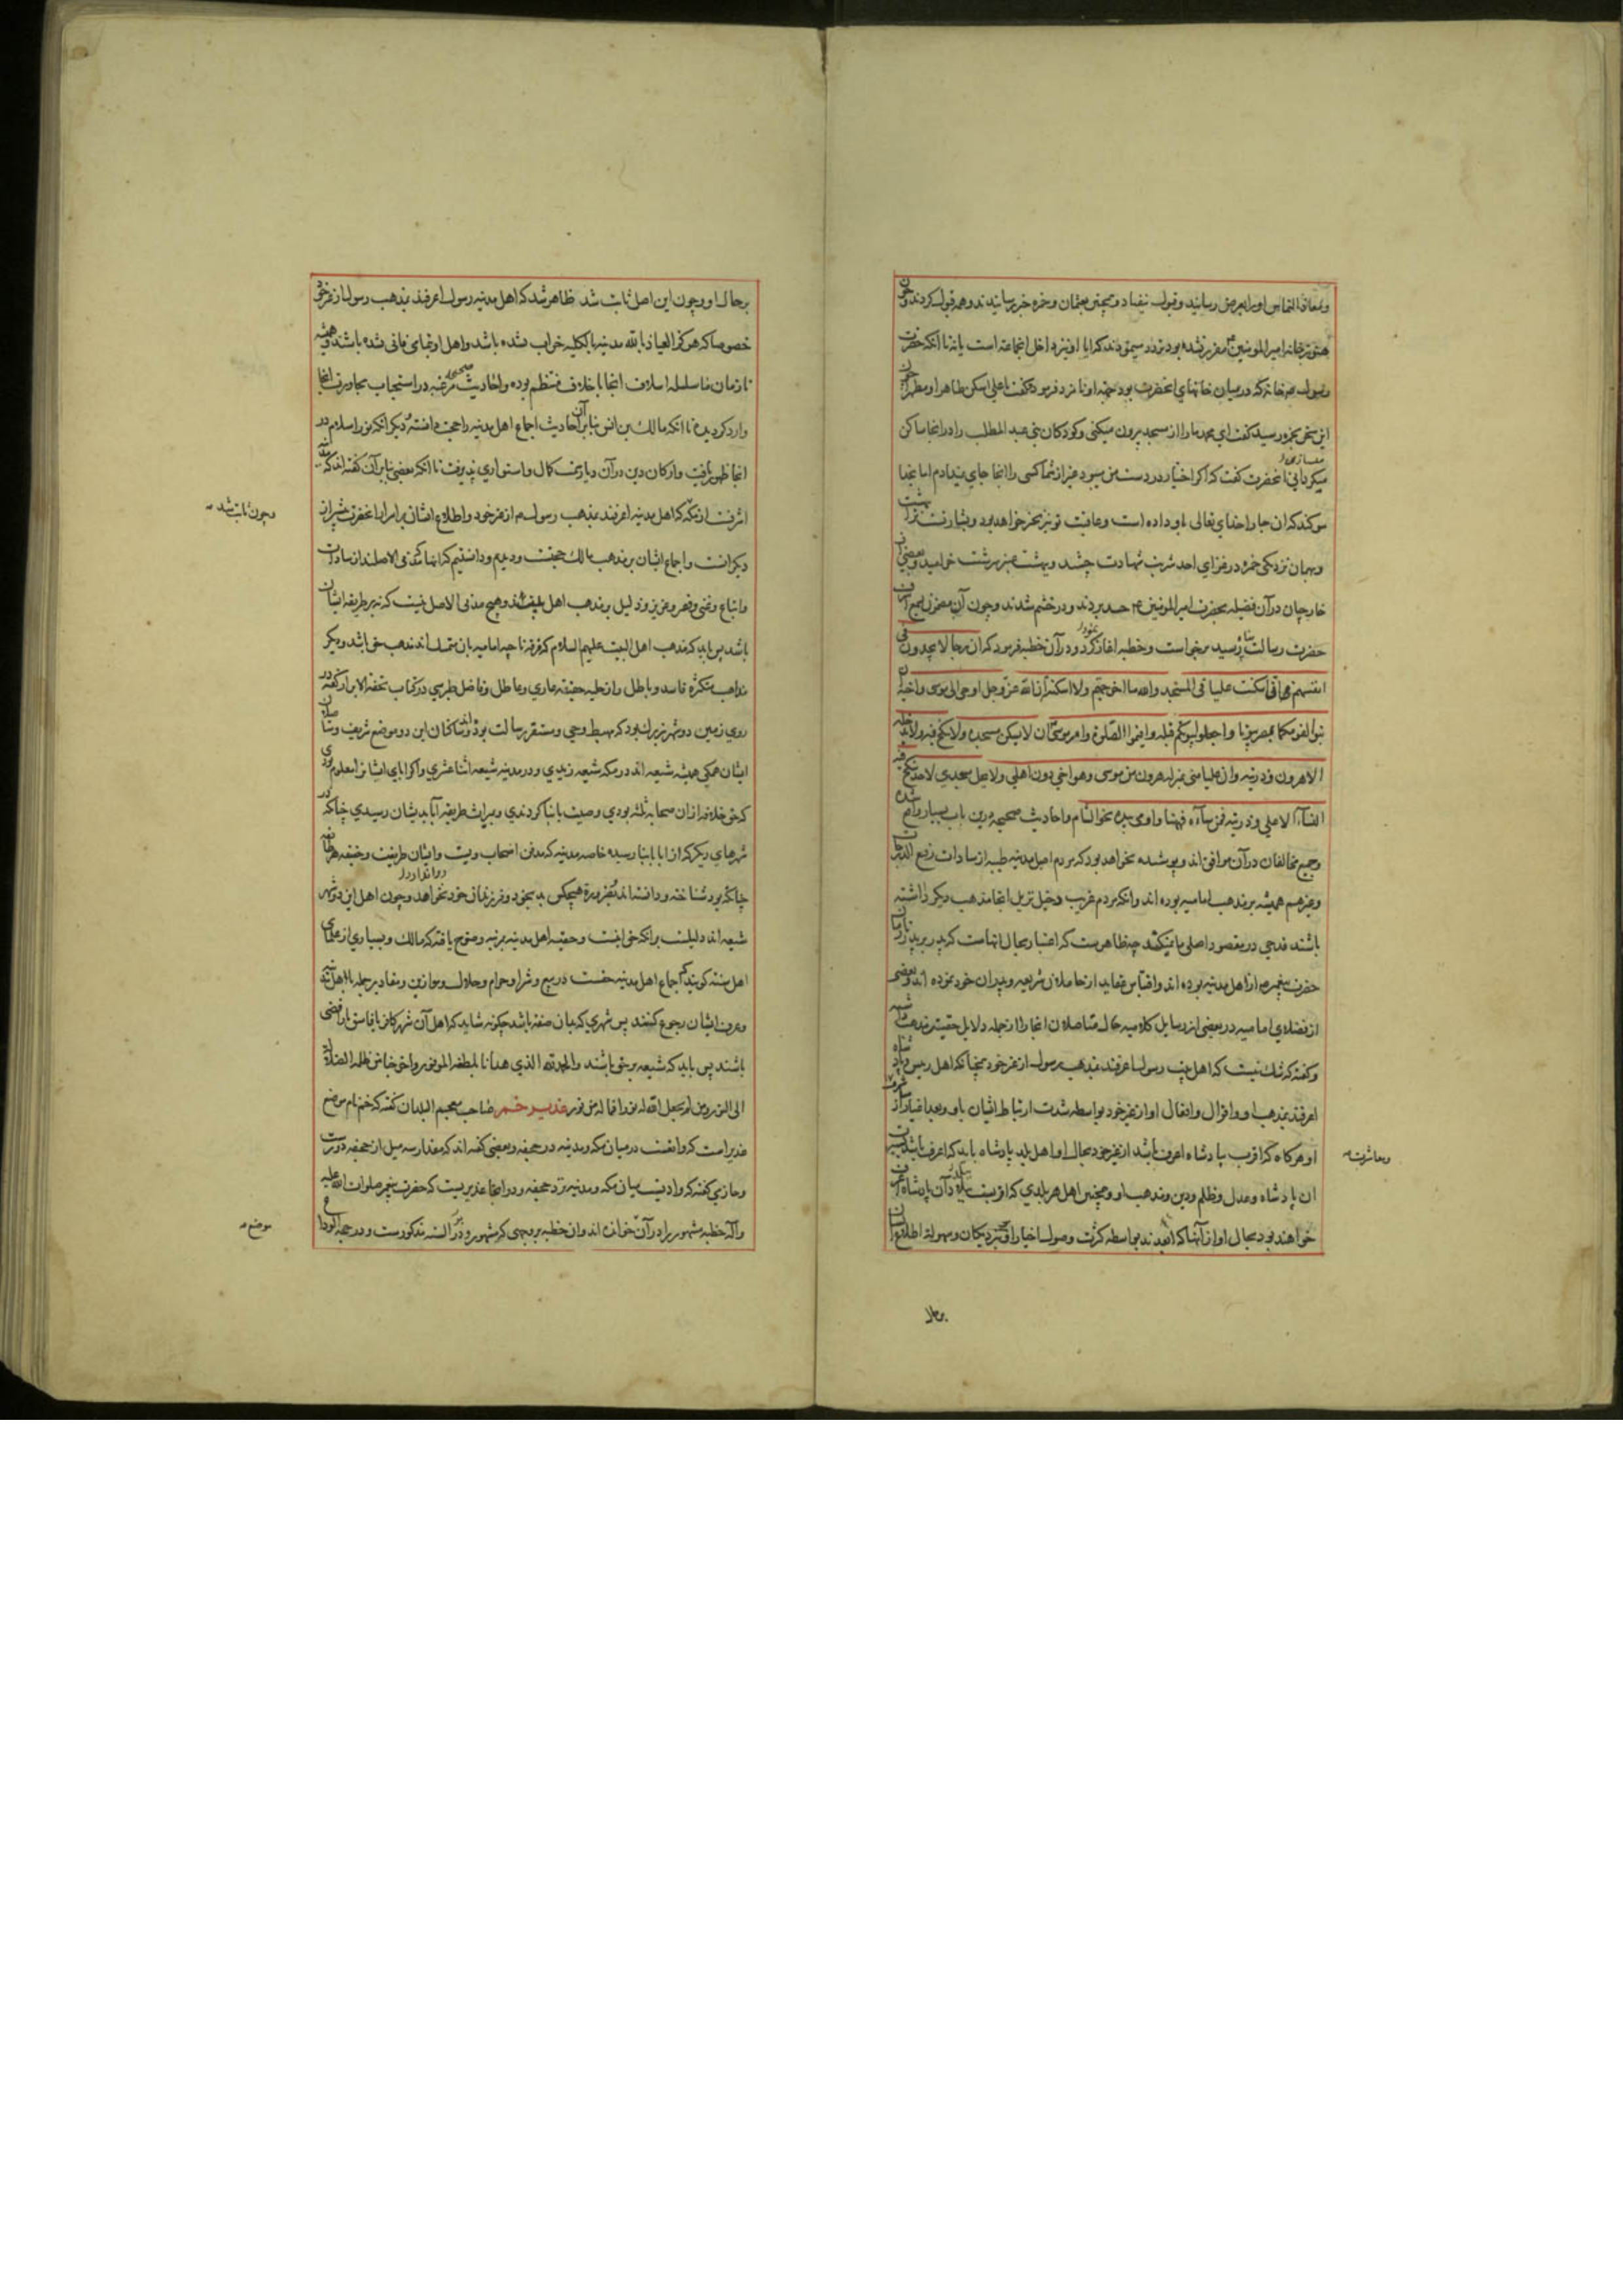 ومعاذ التماس او را بعرض رسانید و قبول نیفتاد و همچنین بعثمان و حمزه خبر رسانیدند و همه قبول کردند و چون
هنوز خانه امیرالمومنین مقرر نشده بود تردد مینمودند که آیا او نیز داخل انجماعة است یا نه تا آنکه حضرت
رسول م خانه که در میان خانهای آنحضرت بود جهة او نامزد فرمود و گفت یا علی اسکن طاهرا و مطهرا چون
این سخن بحمزه رسید گفت ای محمد ما را از مسجد بیرون میکنی و کودکان بنی عبد المطلب را در انجا ساکن
میکردانی آنحضرت گفت که اگر اختیار در دست من میبود غیر از شما کسی را انجا جای نمیدادم اما بخدا
سوکند که ان جا را خدای تعالی باو داده است و عاقبت تو نیز بخیر خواهد بود و بشارتست ترا بهشت
و بهمان نزدیکی حمزه در غزای احد شربت شهادت چشید و بهشت عنبر سرشت خرامید و بعضی از
خارجیان در آن فضیله بحضرت امیرالمومنین ع حسد بردند و در خشم شدند و چون آن سخن بسمع اشرف
حضرت رسالت پناه رسید برخواست و خطبه اغاز نمود و در آن خطبه فرمود که ان رجالا یجدون فی
انفسهم فی ان اسکنت علیا فی المسجد والله ما اخرجتهم ولا اسکنته ان الله عز وجل اوحی الی موسی واخیه ان
تبوآ لقومکما بمصر بیوتا واجعلوا بیوتکم قبلة واقیموا الصلوة وامر موسی ان لا یسکن مسجده ولا ینکح فیه ولا یدخله
الا هرون وذریته وان علیا منی بمنزلة هرون من موسی وهو اخی دون اهلی ولا یحل مسجدی لاحد ینکح فیه
النساء الا علی وذریته فمن ساءه فههنا واومی بیده نحو الشام و احادیث صحیحه درین باب بسیار واقع شده
و جمیع مخالفان در آن موافق اند و پوشیده نخواهد بود که مردم اصل مدینه طیبه از سادات رفیع الدرجات
و غیرهم همیشه بر مذهب امامیه بوده اند و انکه مردم غریب و خیل نزیل انجا مذهب دیکر داشته
باشند قدحی در مقصود اصلی ما نمیکند چه ظاهرست که اعتبار بحال انهاست که پدر بر پدر از زمان
حضرت پیغمبر م از اهل مدینه بوده اند و اقتباس عقاید از حاملان شریعه و پیران خود نموده اند و بعضی
از فضلای امامیه در بعضی از رسایل کلامیه حال متاصلان انجا را از جمله دلایل حقیت مذهب شیعه
و گفته که شک نیست که اهل بیت رسول اعرفند بمذهب رسول از غیر خود همچنانکه اهل رئیس و پادشاه
اعرفند بمذهب او و اقوال و افعال او از غیر خود بواسطه شدت ارتباط ایشان باو و بعد اغیار از شرف
او هرگاه که اقرب پادشاه اعرف باشند از غیر خود بحال او اهل بلد پادشاه باید که اعرف باشند
ومعاشرت
ان پادشاه و عدل و ظلم و دین و مذهب او و همچنین اهل هر بلدی که اقربست ببلد آن پادشاه اعرف
خواهند بود بحال او از آنها که ابعدند بواسطه کثرت وصول اخبار او بنزدیکان و سهولة اطلاع ایشان
بحال
بر حال او و چون این اصل ثابت شد ظاهر شد که اهل مدینه رسول اعرفند بمذهب رسول از غیر خود
خصوصا که هرگز العیاذ بالله مدینه بالکلیه خراب نشده باشد و اهل او تمامی فانی نشده باشند و همیشه
تا زمان ما سلسله اسلاف انجا باخلاف منتظم بوده و احادیث صحیحه مرغبه در استحباب مجاورت انجا
وارد کردیده تا انکه مالک بن انس بنابر آن احادیث اجماع اهل مدینه را حجت دانسته و دیگر انکه نور اسلام در
انجا ظهور یافت و ارکان دین در آن دیار سمت کمال و استواری پذیرفت تا انکه بعضی بنابر آن گفته اند که مدینه
اشرفست از مکه که اهل مدینه اعرفند بمذهب رسول م از غیر خود و اطلاع ایشان بر امرار انحضرت بیش از
وچون ثابت شد
دیکرانست و اجماع ایشان بر مذهب مالک حجتست و دیدیم و دانستیم که انها که مدنی الاصلند از سادات
و اتباع و غنی و فقیر و عزیز و ذلیل بر مذهب اهل بیتند و هیچ مدنی الاصل نیست که نه بر طریقه ایشان
باشد پس باید که مذهب اهل البیت علیهم السلام که فرقه ناجیه امامیه بان متمسک اند مذهب حق باشد و دیکر
مذاهب متکثره فاسد و باطل و از حلیه حقیقه عاری و عاطل و فاضل طبرسی در کتاب تحفه الابرار گفته که در
روی زمین دو شهر زیر لنبود که مهبط وحی و مستقر رسالت بوده اند و ساکنان این دو موضع شریف و متاصلان
ایشان همگی همیشه شیعه اند در مکه شیعه زیدی و در مدینه شیعه اثنا عشری و اگر آبای ایشانرا معلوم بودی
که حق خلافه از ان صحابه ثلثه بودی وصیت بابنا کردندی و میراث طریقه آبا بدیشان رسیدی چنانکه در
شهرهای دیکر که از ابا بابنا رسیده خاصه مدینه که مدفن اصحاب ویست و ایشان طریقت و حقیقه هر طایفه
چنانکه بود شناخته و دانسته اند بضرورة هیچکس بد بخود و فرزندان خود نخواهد و چون اهل این دو شهر
شیعه اند دلیلست برانکه حق اینست و حقیه اهل مدینه بمرتبه وضوح یافته که مالک و بسیاری از علمای
اهل سنه گویند که اجماع اهل مدینه حقست در بیع و شرا و حرام و حلال و موازین و مقادیر جمله با اهل مدینه
و عرف ایشان رجوع کنند پس شهری که بدان صفة باشد چگونه شاید که اهل آن شهر کافر یا فاسق یا رافضی
باشند پس باید که شیعه بر حق باشند والحمد لله الذی هدانا بلطفه الموفور واخرجنا من ظلمه الضلالة
الی النور ومن لم یجعل الله له نورا فما له من نور غدیر خم صاحب معجم البلدان گفته که خم نام موضع
غدیرست که واقعست در میان مکه و مدینه در جحفه و بعضی گفته اند که مقدار سه میل از جحفه دورست
و حازمی گفته که وادیست میان مکه و مدینه نزد جحفه و در انجا غدیریست که حضرت پیغمبر صلوات الله علیه
واله خطبه مشهور را در آن خوانده اند و ان خطبه بر وجهی که مشهور و در السنه مذکورست و در حجة الوداع
موضع